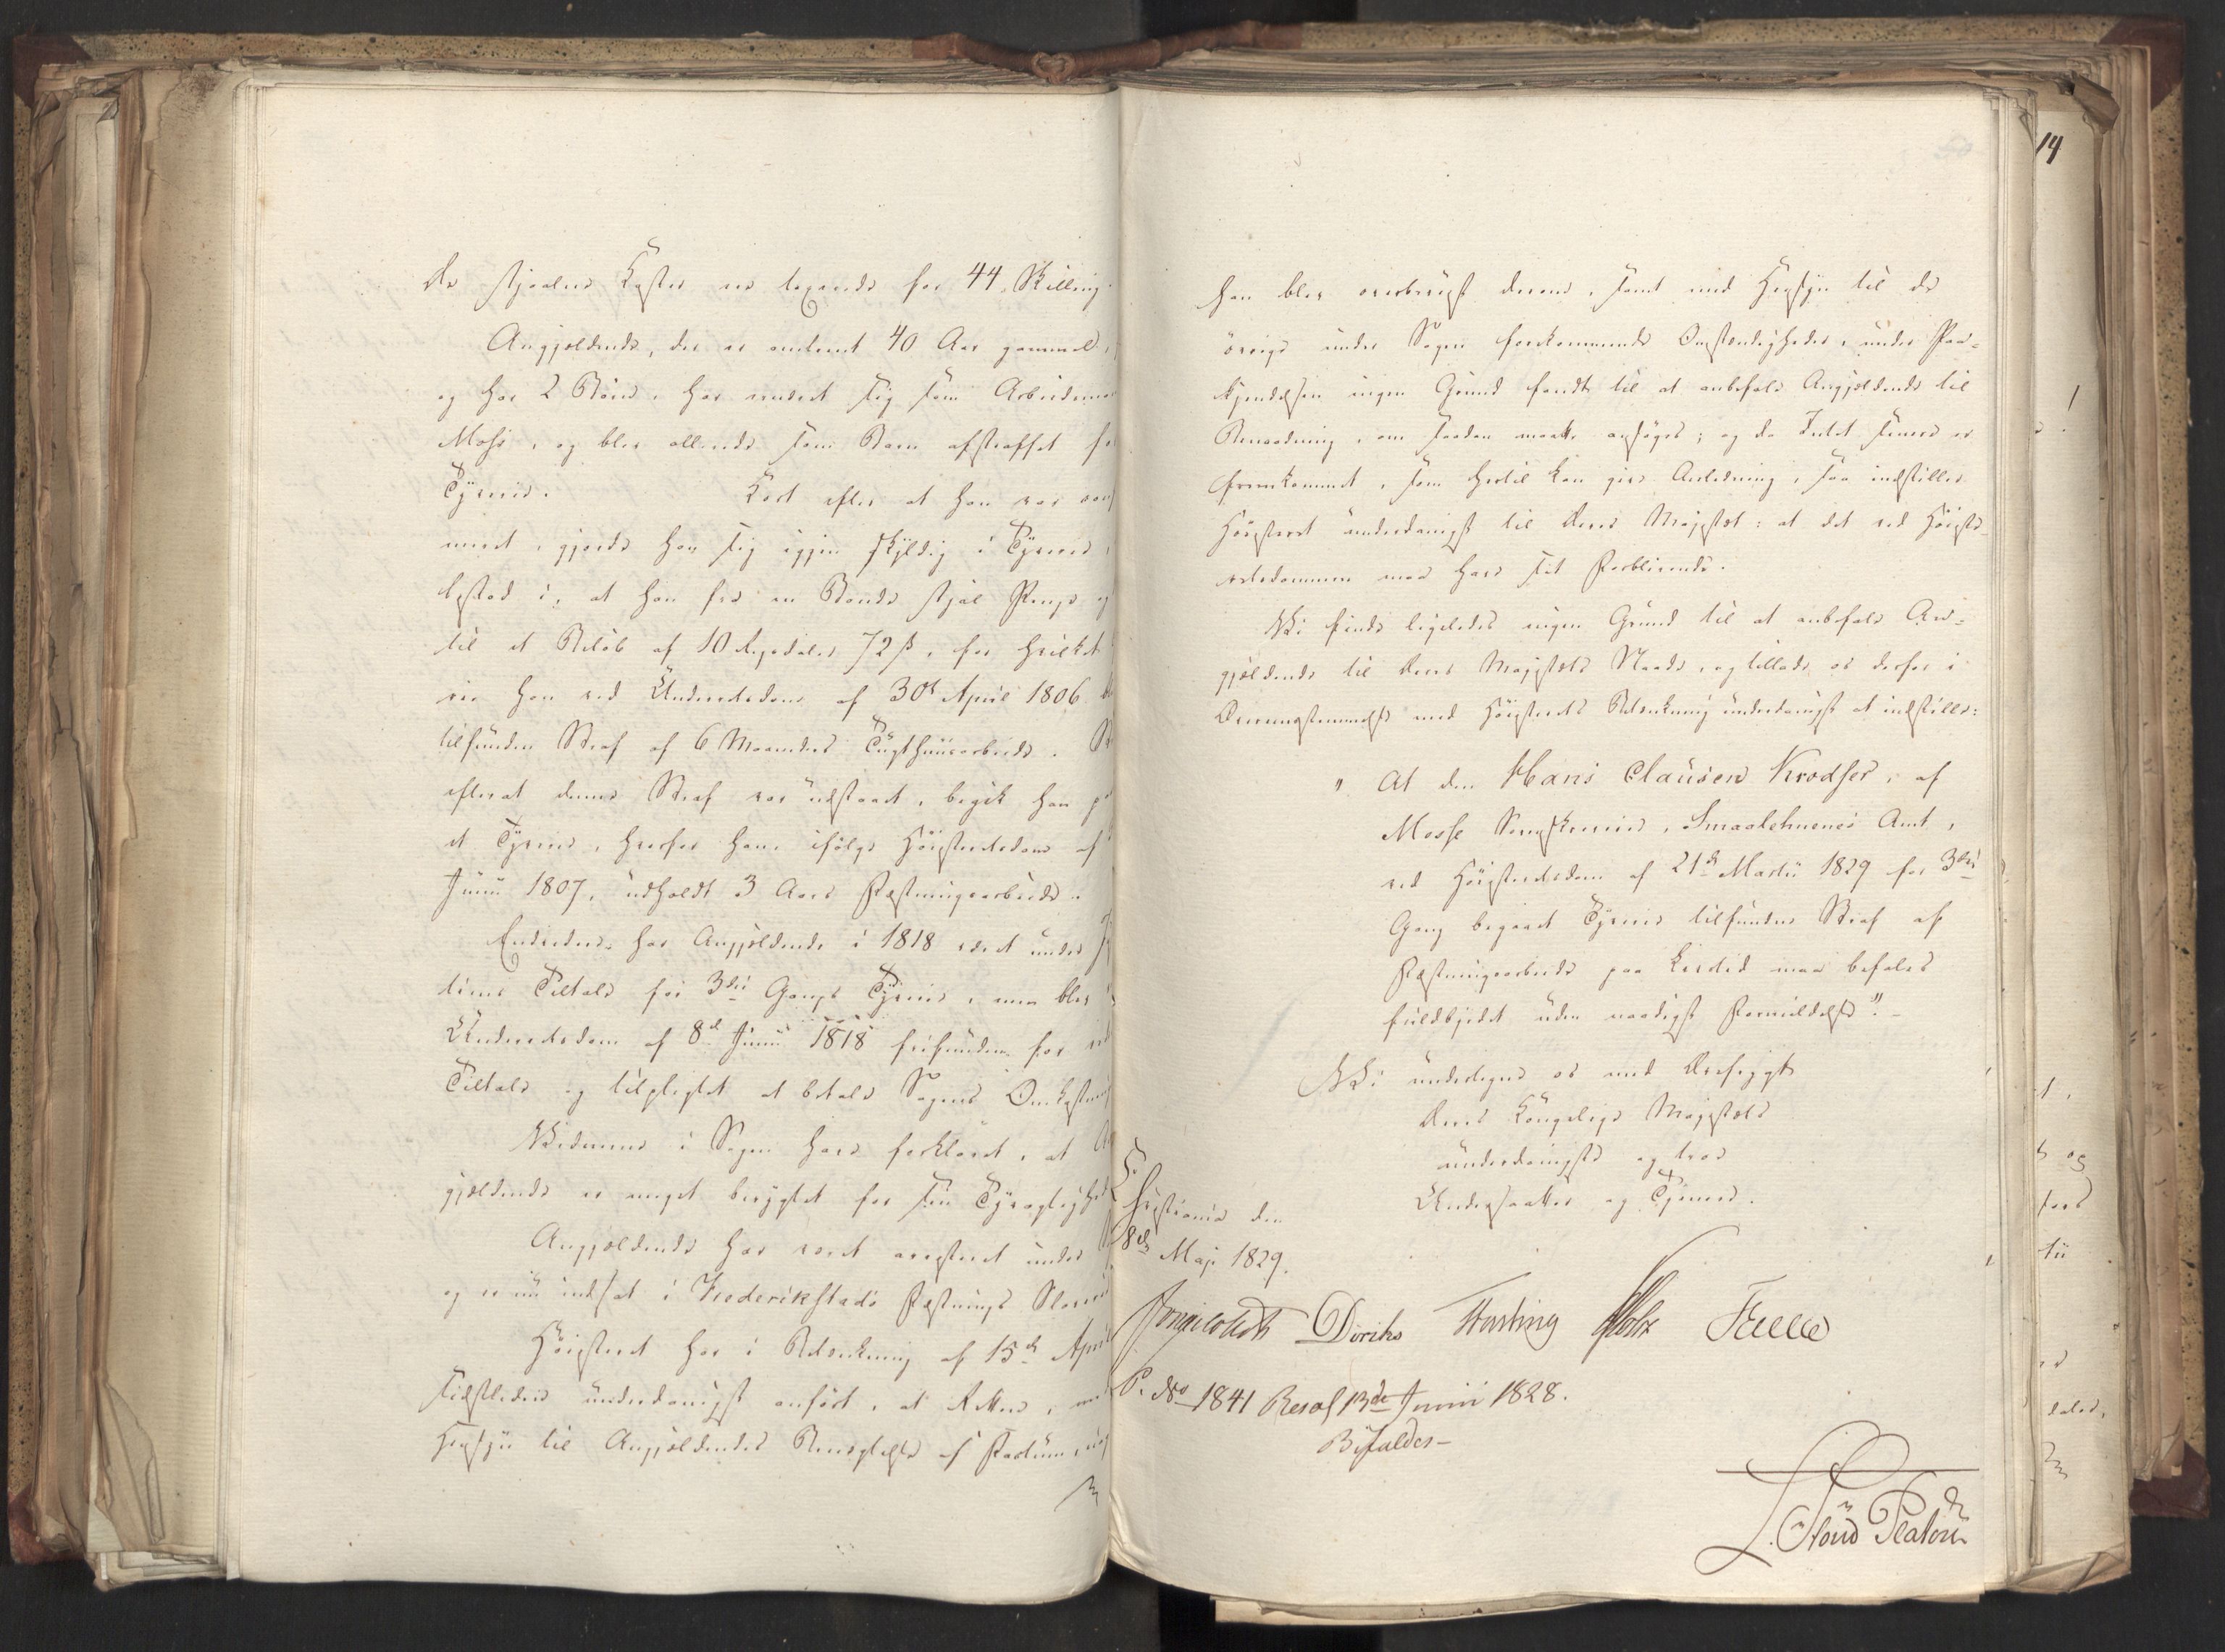 De stjaalne Koster ere taxerede for 44 Skilling
Angjældende, der er omtrent 40 Aar gammel,
og har 2 Börn, har næret sig som Arbeidsman
Moss, og blev allerede som Barn afstraffet for
Tyverie. Kort efter at han var
meret, gjorde han sig igjen skyldig i Tyverie,
bestod i, at han fra en Bonde stjal Penge og
til et Belöb af 10 Rigsdaler 72 ß, for hvilket
rie han ved Underretsdom af 30te April 1806
tilfunden Straf af 6 Maaneders Tugthuusarbeide.
efterat denne Straf var udstaaet, begik han
et Tyverie, hvorfor han, ifölge Höiesteretsdom af
Junii 1807, udholdt 3 Aars Fæstningsarbeide.
Endvidere har Angjældende i 1818 været under
tiens Tiltale for 3die Gangs Tyverie, men blev
Underretsdom af 8de Junii 1818 frifunden for
Tiltale og tilpligtet at betale Sagens Omkostnin
Vidnerne i Sagen have forklaret, at An
gjældende er meget berygtet for sin Tyvagtighed
Angjældende har været arresteret under
og er nu indsat i Frederikstads Fæstnings Slaverie
Höiesteret har i Betænkning af 15de April
sidstleden underdanigst anfört, at Retten, med
Hensyn til Angjældendes Benegtelse af Factum,
han blev overbeviist derom, samt med Hensyn til de
övrige under Sagen forekommende Omstændigheder, under Paa-
kjendelsen ingen Grund fandt til at anbefale Angjældende til
Benaadning, om saadan maatte ansöges; og da Intet senere er
fremkommet, som hertil kan give Anledning, saa indstiller
Höiesteret underdanigst til Deres Majestæt: at det ved Höieste-
retsdommen maa have sit Forblivende.
Vi finde ligeledes ingen Grund til at anbefale An-
gjældende til Deres Majestæts Naade, og tillade os derfor i
Overensstemmelse med Höiesterets Betænkning underdanigst at indstille:
" At den Hans Clausen Krodser, af
Mosse Sorenskriverie, Smaalehnenes Amt,
ved Höiesteretsdom af 21de Martii 1829 for 3die
Gang begaaet Tyverie tilfundne Straf af
Fæstningsarbeide paa Livstid maa befales
fuldbyrdet uden naadigst Formildelse."-
Vi undertegne os med Ærefrygt
Deres Kongelige Majestæts
underdanigste og troe
Undersaatter og Tjenere.
Christiania den
8de Maji 1829.
Diriks Hartvig Holst Falbe
P. No 1841 Resol 13de Junii 1828.
Bifaldes-
L. Stoud Platou
14